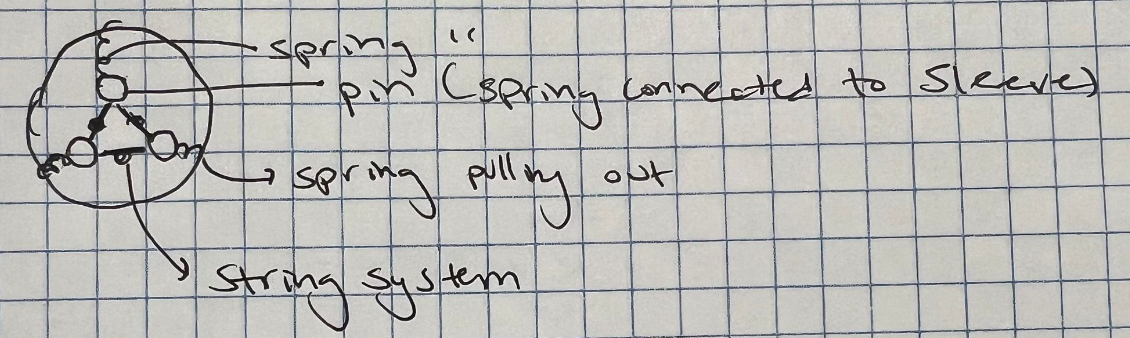 spring "
pin (spring connected to sleeve)
spring pulling out
string system